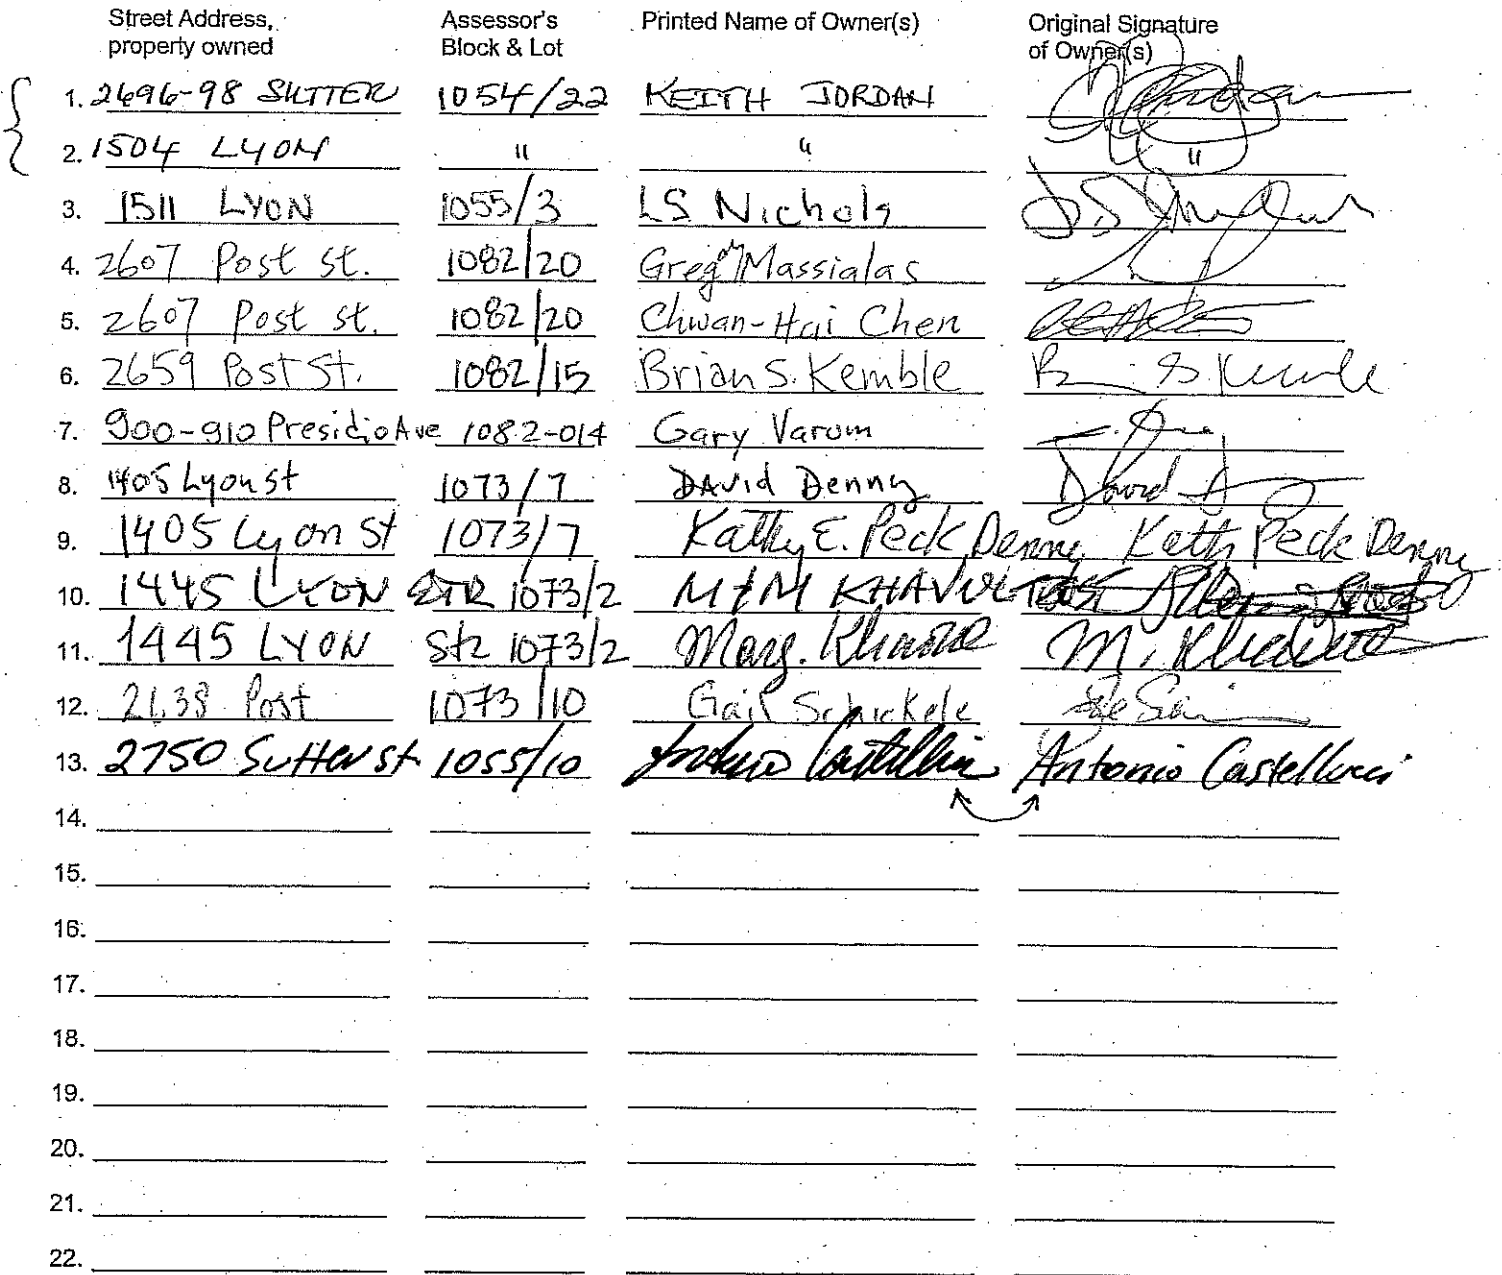 Street Address, Assessor's Printed Name of Owner(s) Original Signature
property owned Block & Lot of Owner(s)
1. 2696-98 SUTTER 1054/22 KEITH JORDAN
2. 1504 LYON " " "
3. 1511 LYON 1055/3 LS Nichols
4. 2607 Post St. 1082/20 Gregory Massialas
5. 2607 Post St. 1082/20 Chwan-Hai Chen
6. 2659 Post St. 1082/15 Brian S. Kemble B S. Kemble
7. 900-910 Presidio Ave 1082-014 Gary Varum
8. 1405 Lyon st 1073/7 DAVid Denny David D
9. 1405 Lyon St 1073/7 Kathy E. Peck Denny Kathy Peck Denny
10. 1445 LYON STR 1073/2 M/M
11. 1445 LYON Str 1073/2 Marg. M.
12. 2638 Post 1073/10 Gail Schickele
13. 2750 Sutter st. 1055/10 Antonio Castellucci Antonio Castellucci
14.
15.
16.
17.
18.
19.
20.
21.
22.